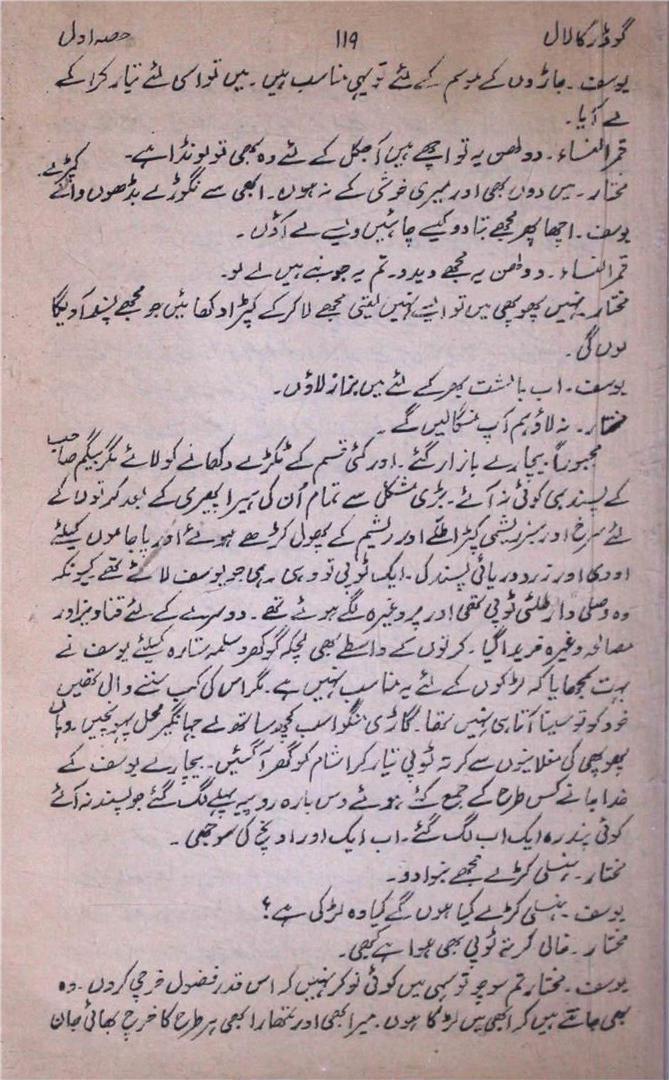 گودڑ کا لال ۱۱۹ حصہ اول
یوسف۔ جاڑوں کے موسم کے لئے تو یہی مناسب ہیں۔ میں تو اسی لئے تیار کرا کے
لے آیا۔
قمر النساء۔ دولھن یہ تو اچھے ہیں آجکل کے لئے وہ بھی تو لونڈا ہے۔
مختار۔ میں دوں بھی اور میری خوشی کے نہ ہوں۔ ابھی سے نگوڑے بڈھوں والے کپڑے۔
یوسف۔ اچھا پھر مجھے بتا دو کیسے چاہئیں ویسے لے آؤں۔
قمر النساء۔ دولھن یہ مجھے دیدو۔ تم یہ جو بنے ہیں لے لو۔
مختار۔ نہیں پھوپھی میں تو ایسے نہیں لیتی مجھے لا کر کے کپڑا دکھائیں جو مجھے پسند آویگا
لوں گی۔
یوسف۔ اب بالشت بھر کے لئے میں بزاز لاؤں۔
مختار۔ نہ لاؤ ہم آپ منگالیں گے۔
مجبوراً بیچارے بازار گئے۔ اور کئی قسم کے ٹکڑے دکھانے کو لائے مگر بیگم صاحب
کے پسند ہی کوئی نہ آئے۔ بڑی مشکل سے تمام اُن کی ہیرا پھیری کے بعد کمرتوں کے
لئے سرخ اور سبز ریشمی کپڑا طلے اور ریشم کے پھول کڑھے ہوئے اور پاجاموں کیلئے
اودی اور زرد دریائی پسند کی۔ ایک ٹوپی تو وہی رہی جو یوسف لائے تھے کیونکہ
وہ وصلی دار طلئی ٹوپی تھی اور پر وغیرہ لگے ہوئے تھے۔ دوسرے کے لئے قناویز اور
مصالحہ وغیرہ خریدا گیا۔ کرتوں کے واسطے بھی لچکہ گوکھرو سلمہ ستارہ کیلئے یوسف نے
بہت سمجھایا کہ لڑکوں کے لئے یہ مناسب نہیں ہے۔ مگر اس کی کب سننے والی تھیں
خود کو تو سینا آتا ہی نہیں تھا۔ گاڑی منگوا سب کچھ ساتھ لے جہانگیر محل پہونچیں۔ وہاں
پھوپھی کی مغلانیوں سے کرتہ ٹوپی تیار کرا شام کو گھر آگئیں۔ بیچارے یوسف کے
خدا جانے کس طرح کے جمع کئے ہوئے دس بارہ روپیہ پہلے لگ گئے جو پسند نہ آئے
کوئی پندرہ ایک اب لگ گئے۔ اب ایک اور اونچ کی سوجھی۔
مختار۔ ہنسلی کڑے مجھے بنوا دو۔
یوسف۔ ہنسلی کڑے کیا ہوں گے کیا وہ لڑکی ہے؟
مختار۔ خالی کرتے ٹوپی بھی ہوا ہے کبھی۔
یوسف۔ مختار تم سوچو تو سہی میں کوئی نوکر نہیں کہ اس قدر فضول خرچی کروں۔ وہ
بھی جانتے ہیں کہ ابھی میں لڑکا ہوں۔ میرا بھی اور تمھارا بھی ہر طرح کا خرچ بھائی جان